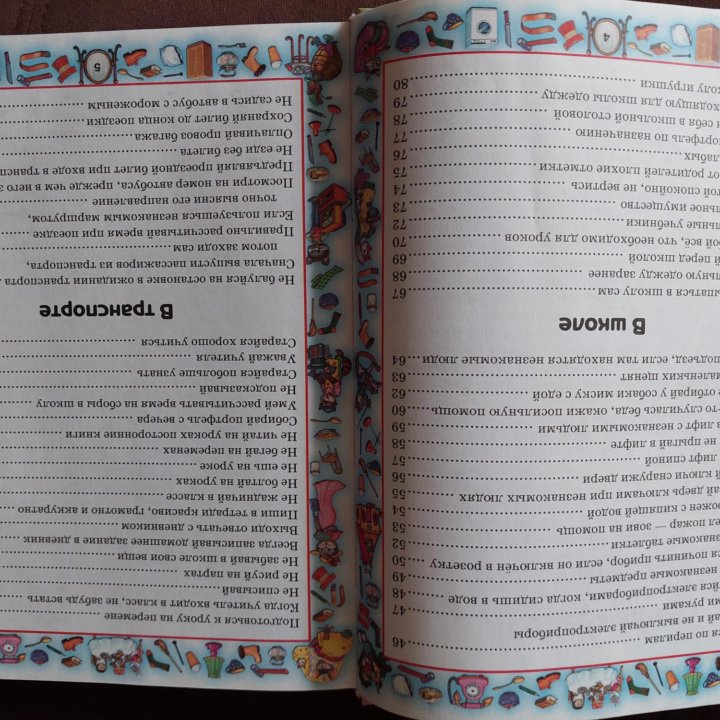 4
я по перилам 46
ай и не выключай электроприборы
ми руками 47
ся электроприборами, когда сидишь в воде 48
незнакомые предметы 49
ся починить прибор, если он включён в розетку 50
знакомые таблетки 52
ел пожар — зови на помощь 53
рожен с кипящей водой 54
ай дверь ключами при незнакомых людях 55
й ключи снаружи двери 56
лифт спиной 57
не прыгай в лифте 58
в лифт с незнакомыми людьми 59
то случилась беда, окажи посильную помощь 60
е отбирай у собаки миску с едой 62
маленьких щенят 63
подъезд, если там находятся незнакомые люди 64
В школе
ышаться в школу сам 67
льную одежду заранее 68
й перед школой 69
ой всё, что необходимо для уроков 70
льные учебники 72
льное имущество 73
ой спокойно, не вертись 74
от родителей плохие отметки 75
лабых 76
портфель по назначению 77
и себя в школьной столовой 78
ходящую для школы одежду 79
колу игрушки 80
5
Подготовься к уроку на перемене
Когда учитель входит в класс, не забудь встать
Не списывай
Не рисуй на партах
Не забывай в школе свои вещи
Всегда записывай домашнее задание в дневник
Выходи отвечать с дневником
Пиши в тетради красиво, грамотно и аккуратно
Не жадничай в классе
Не болтай на уроках
Не ешь на уроке
Не бегай на переменах
Не читай на уроках посторонние книги
Собирай портфель с вечера
Умей рассчитывать время на сборы в школу
Не подсказывай
Старайся побольше узнать
Уважай учителя
Старайся хорошо учиться
В транспорте
Не балуйся на остановке в ожидании транспорта
Сначала выпусти пассажиров из транспорта,
потом заходи сам
Правильно рассчитывай время при поездке
Если пользуешься незнакомым маршрутом,
точно выясни его направление
Посмотри на номер автобуса, прежде чем в него з
Предъявляй проездной билет при входе в трансп
Не езди без билета
Оплачивай провоз багажа
Сохраняй билет до конца поездки
Не садись в автобус с мороженым